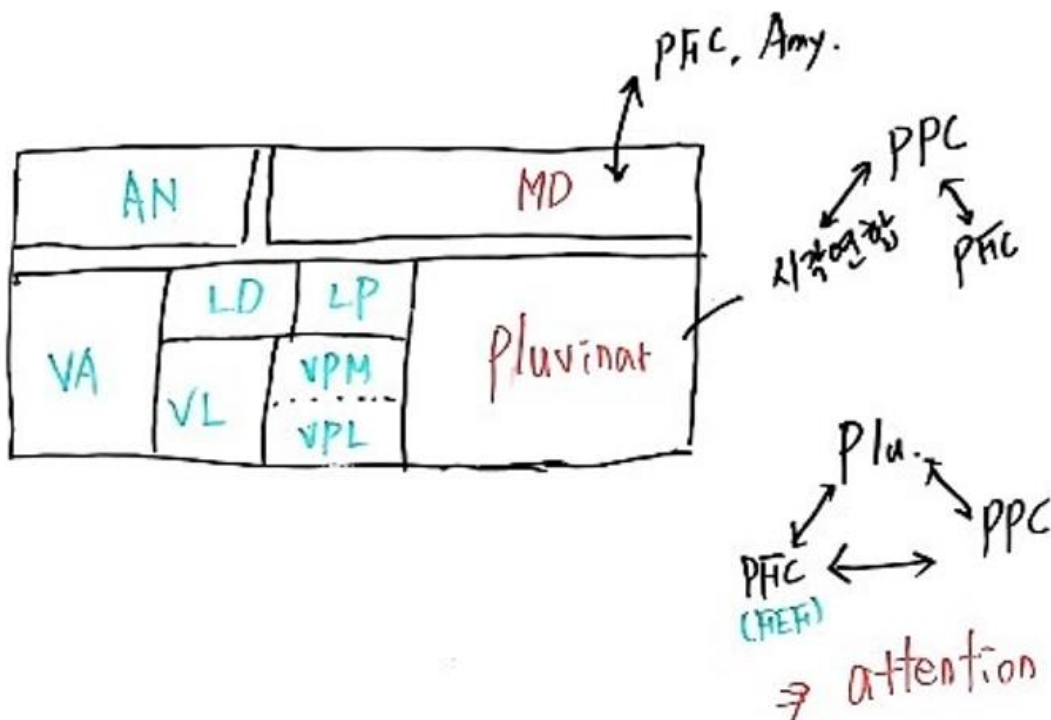 PFC, Amy.
AN
MD
PPC
시각연합
PFC
LD
LP
VA
VL
VPM
VPL
Pluvinar
Plu.
PPC
PFC
(FEF)
⇒ attention